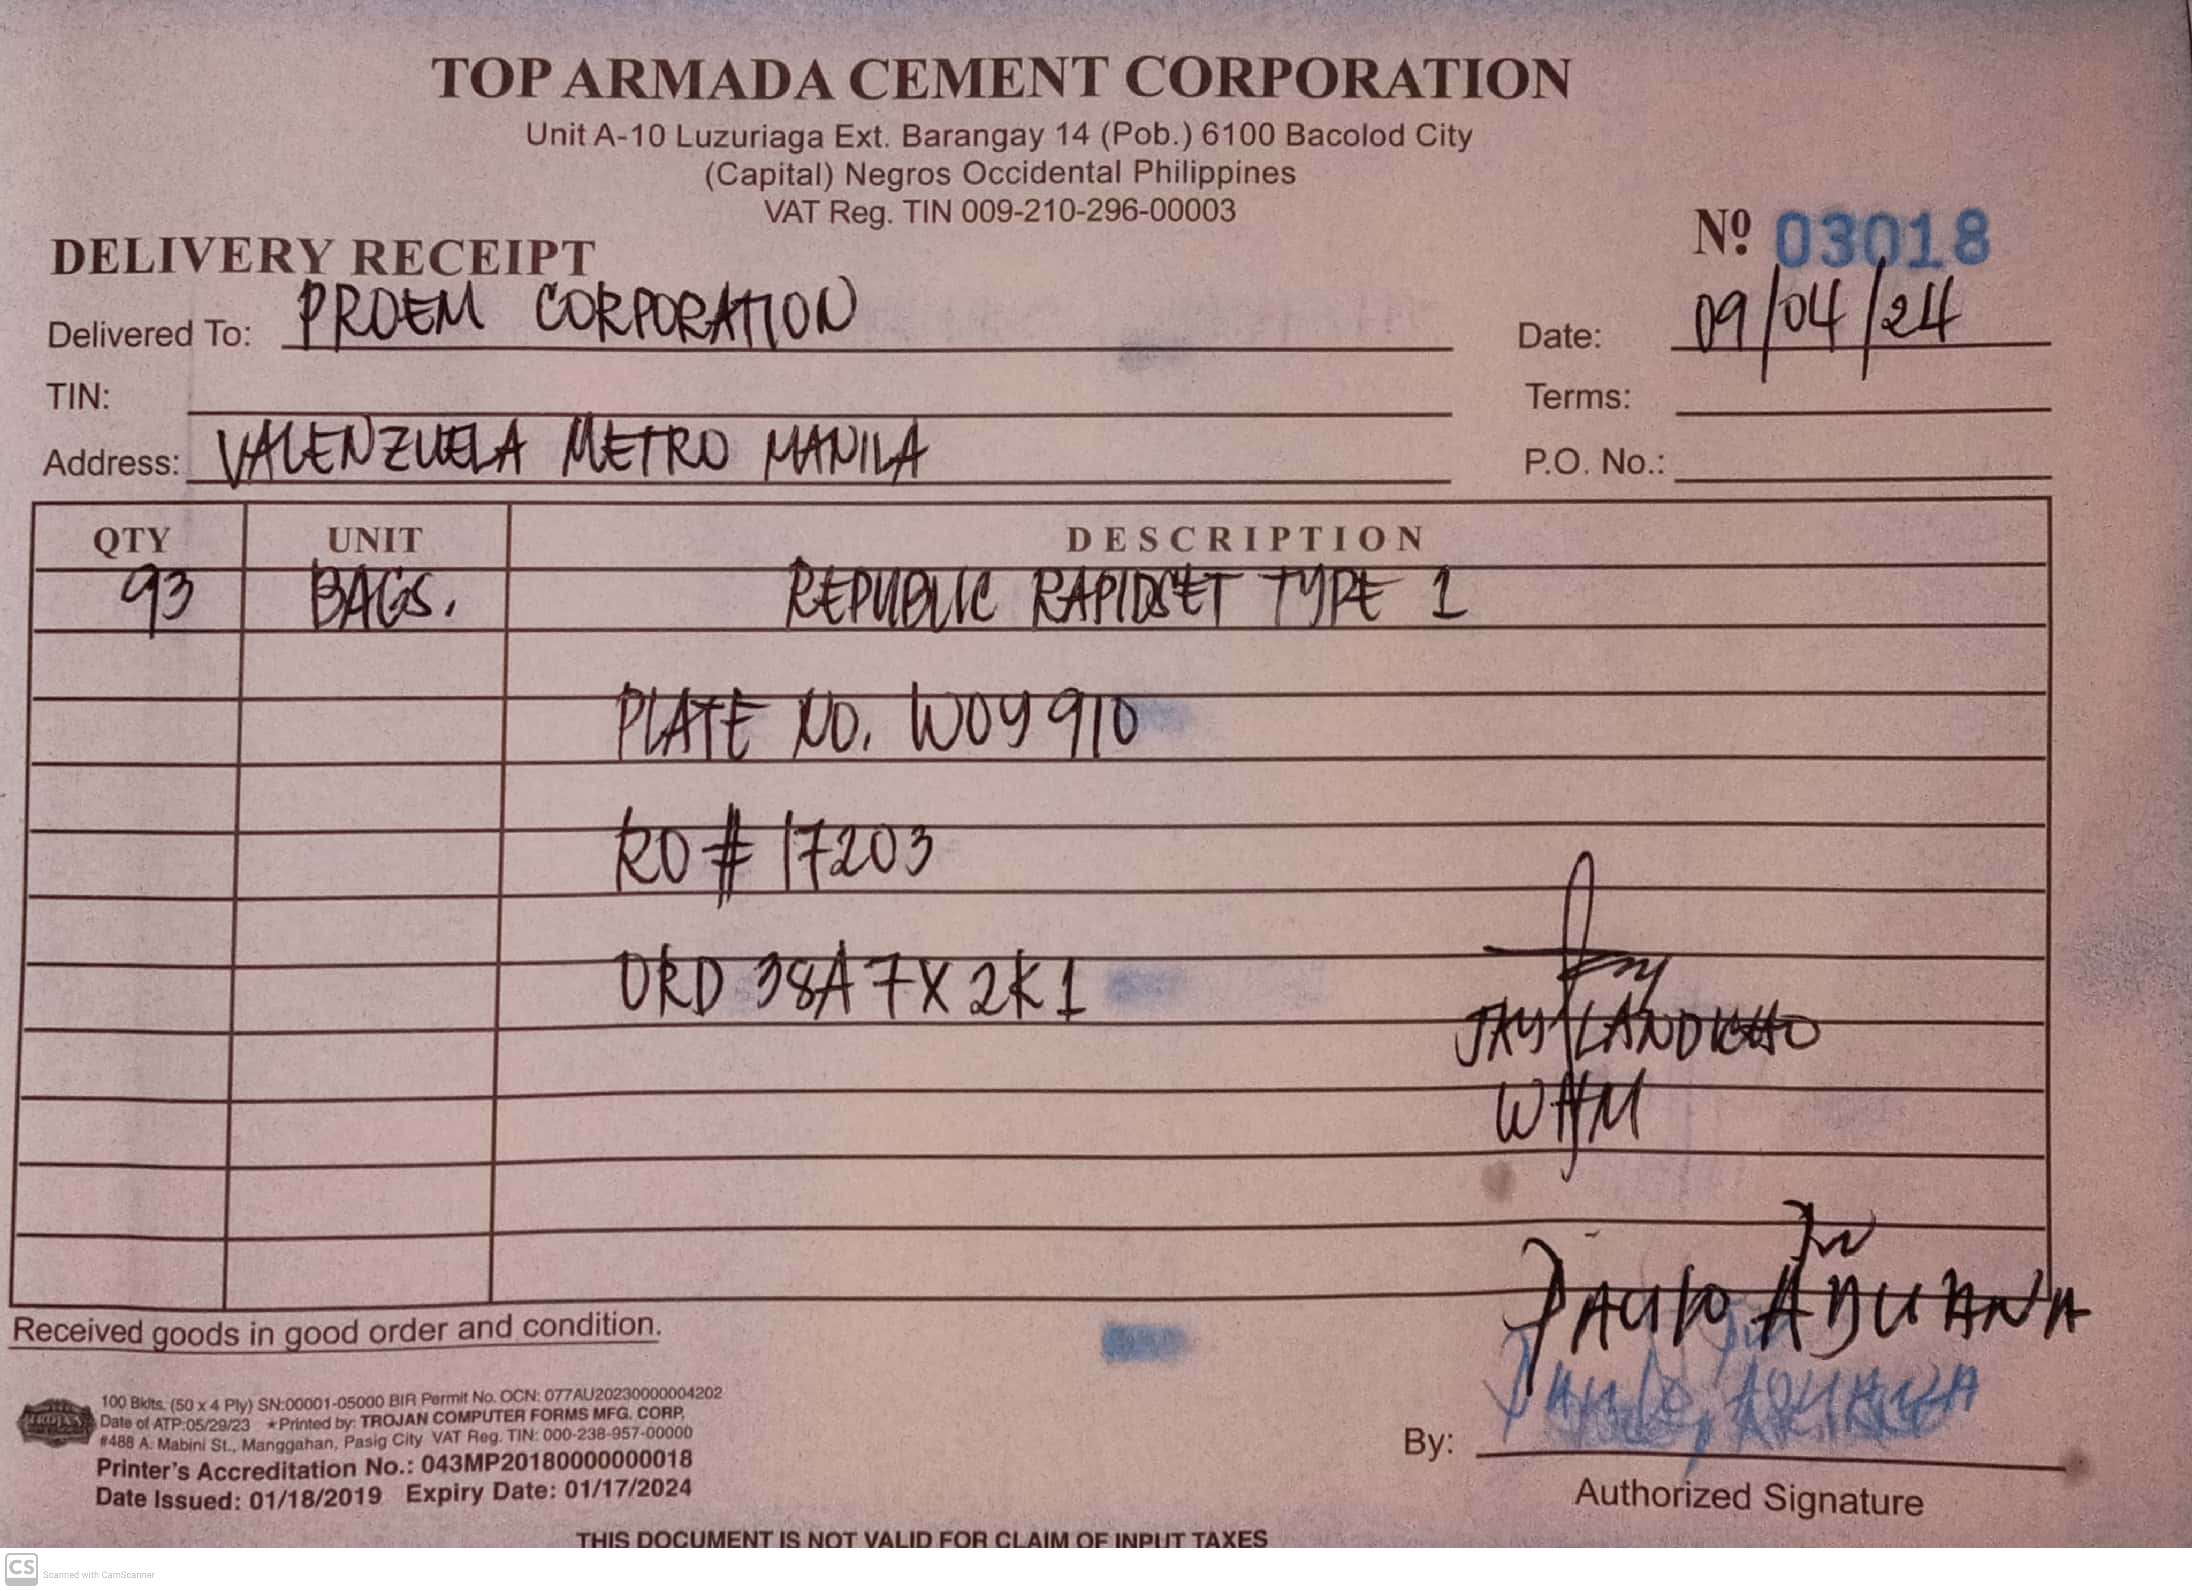 TOP ARMADA CEMENT CORPORATION
Unit A-10 Luzuriaga Ext. Barangay 14 (Pob.) 6100 Bacolod City
(Capital) Negros Occidental Philippines
VAT Reg. TIN 009-210-296-00003
DELIVERY RECEIPT
Nº 03018
Delivered To: PROEM CORPORATION
Date: 09/04/24
TIN:
Terms:
Address: VALENZUELA METRO MANILA
P.O. No.:
QTY UNIT DESCRIPTION
93 BAGS. REPUBLIC RAPIDSET TYPE 1
PLATE NO. WOY 910
RO # 17203
ORD 38A7X2K1
JAY LANDICHO
WHM
Received goods in good order and condition.
100 Bklts. (50 x 4 Ply) SN:00001-05000 BIR Permit No. OCN: 077AU20230000004202
Date of ATP:05/29/23 ★Printed by: TROJAN COMPUTER FORMS MFG. CORP.
#488 A. Mabini St., Manggahan, Pasig City VAT Reg. TIN: 000-238-957-00000
Printer's Accreditation No.: 043MP20180000000018
Date Issued: 01/18/2019 Expiry Date: 01/17/2024
By:
Authorized Signature
THIS DOCUMENT IS NOT VALID FOR CLAIM OF INPUT TAXES
CS Scanned with CamScanner